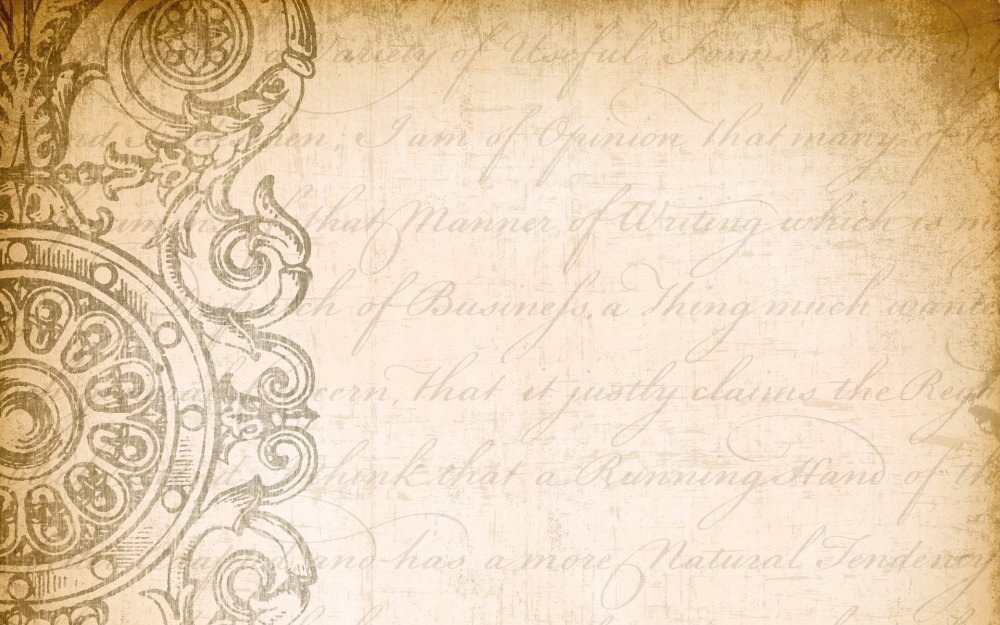 Variety of Useful Forms practised
I am of Opinion that many of
that Manner of Writing which is
of Business a Thing much
that it justly claims the
think that a Running Hand of
and has a more Natural Tendency